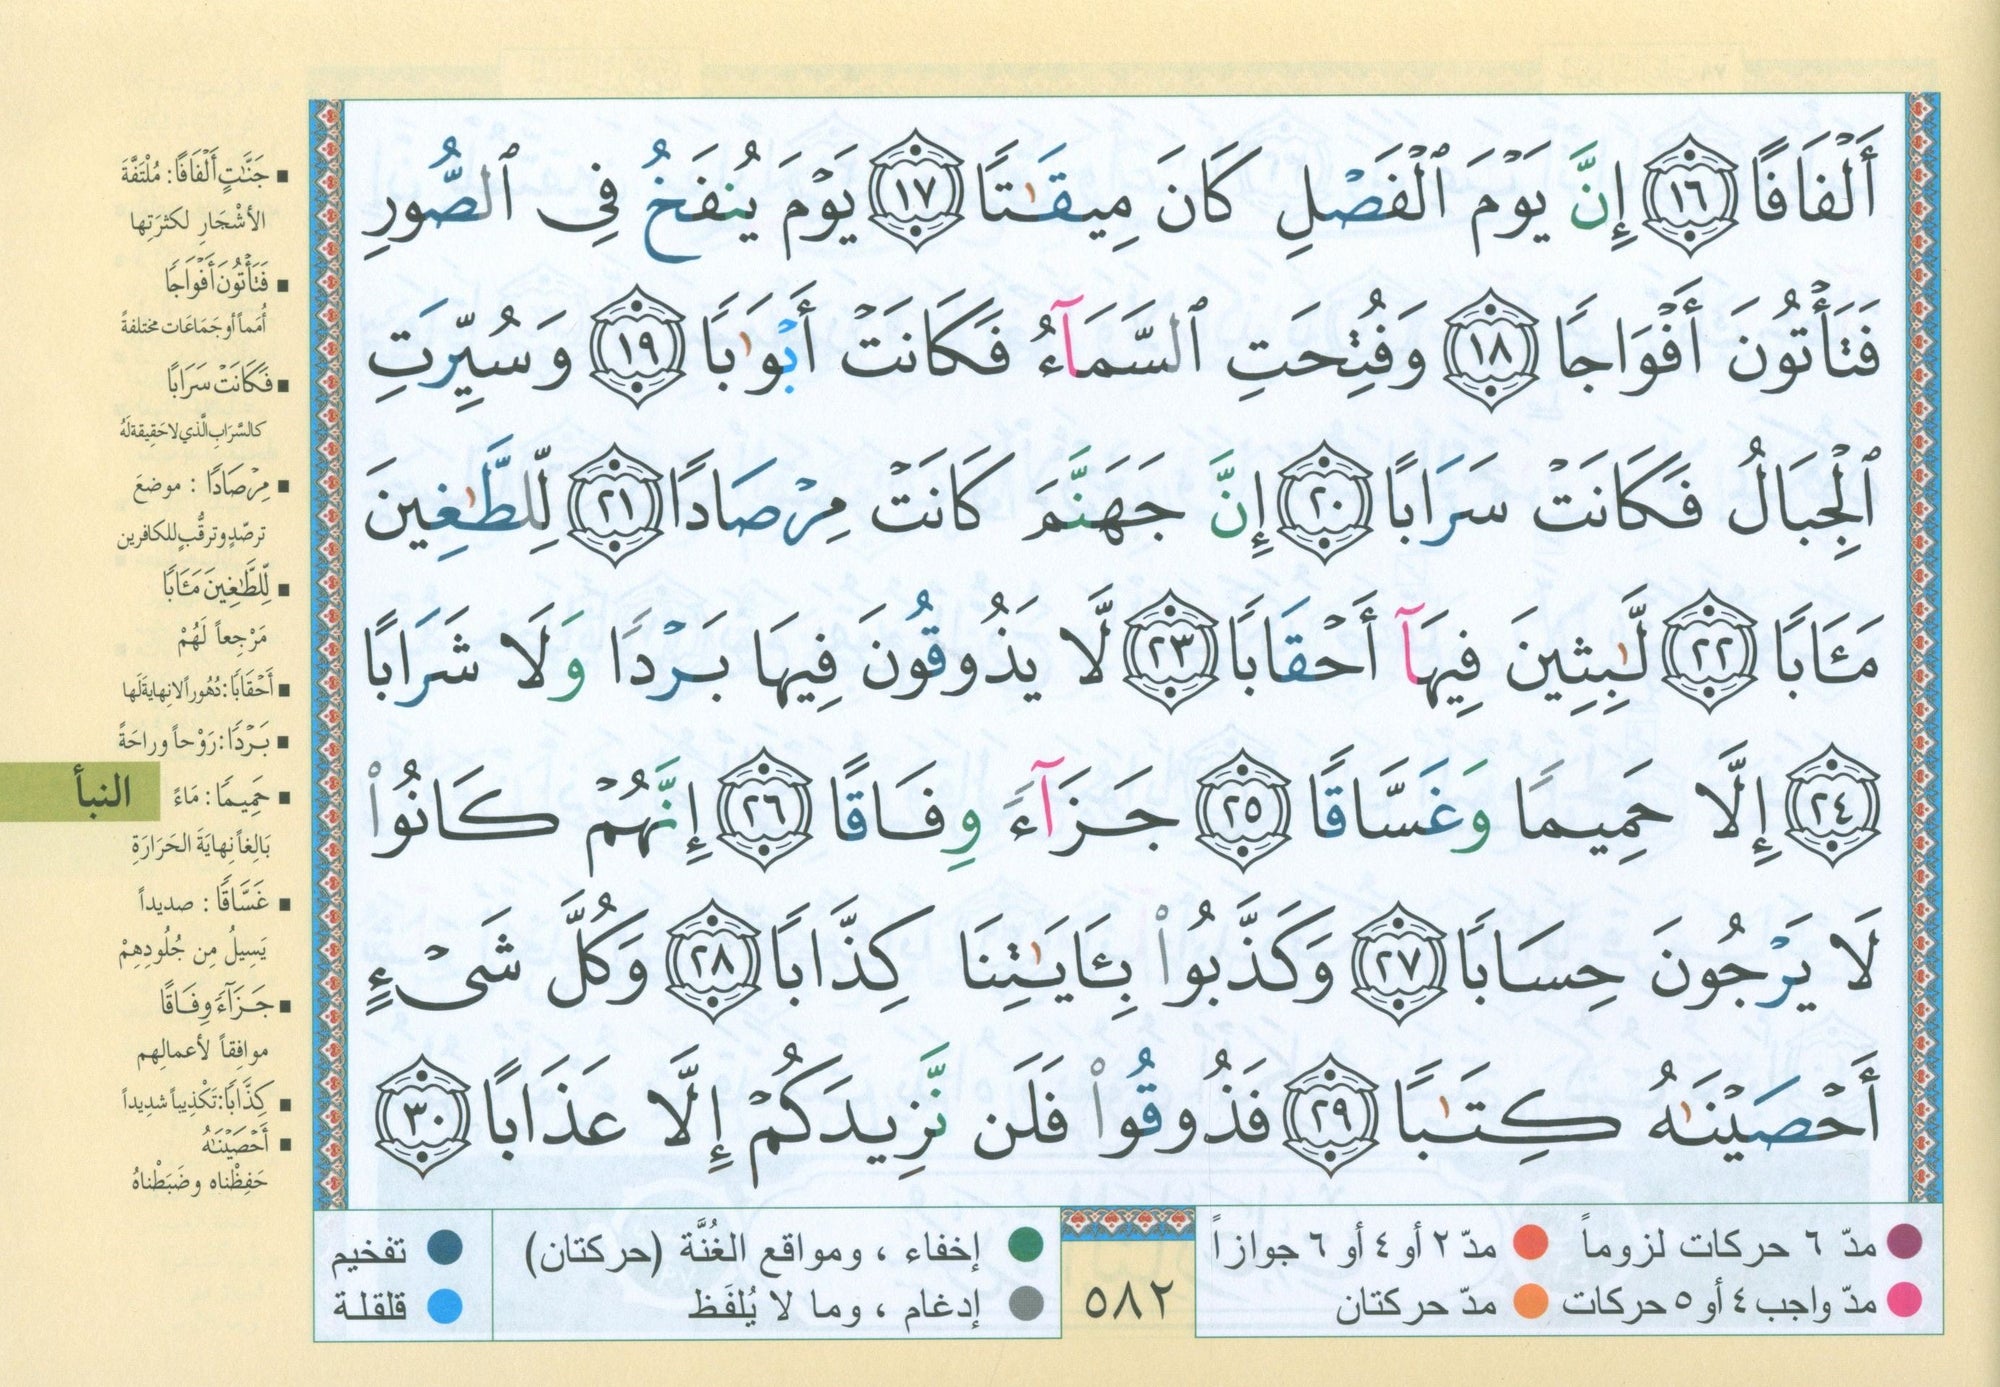 أَلْفَافًا ١٦ إِنَّ يَوْمَ ٱلْفَصْلِ كَانَ مِيقَٰتًا ١٧ يَوْمَ يُنفَخُ فِى ٱلصُّورِ
فَتَأْتُونَ أَفْوَاجًا ١٨ وَفُتِحَتِ ٱلسَّمَآءُ فَكَانَتْ أَبْوَٰبًا ١٩ وَسُيِّرَتِ
ٱلْجِبَالُ فَكَانَتْ سَرَابًا ٢٠ إِنَّ جَهَنَّمَ كَانَتْ مِرْصَادًا ٢١ لِّلطَّٰغِينَ
مَـَٔابًا ٢٢ لَّٰبِثِينَ فِيهَآ أَحْقَابًا ٢٣ لَّا يَذُوقُونَ فِيهَا بَرْدًا وَلَا شَرَابًا
٢٤ إِلَّا حَمِيمًا وَغَسَّاقًا ٢٥ جَزَآءً وِفَاقًا ٢٦ إِنَّهُمْ كَانُوا۟
لَا يَرْجُونَ حِسَابًا ٢٧ وَكَذَّبُوا۟ بِـَٔايَٰتِنَا كِذَّابًا ٢٨ وَكُلَّ شَىْءٍ
أَحْصَيْنَٰهُ كِتَٰبًا ٢٩ فَذُوقُوا۟ فَلَن نَّزِيدَكُمْ إِلَّا عَذَابًا ٣٠
جَنَّٰتٍ أَلْفَافًا: مُلْتَفَّةَ
الأشْجَارِ لكثرَتِها
فَتَأْتُونَ أَفْوَاجًا
أُمَماً أو جَمَاعَات مختلفةً
فَكَانَتْ سَرَابًا
كالسَّرَابِ الَّذي لا حَقِيقةَ لَهُ
مِرْصَادًا : موضعَ
ترصّدٍ وترقُّبٍ للكافرين
لِّلطَّٰغِينَ مَـَٔابًا
مَرْجِعاً لَهُمْ
أَحْقَابًا: دُهُوراً لا نِهايةَ لَها
بَرْدًا: رَوْحاً وراحَةً
حَمِيمًا: مَاءً
بَالِغاً نِهايَةَ الحَرَارَةِ
غَسَّاقًا : صديداً
يَسِيلُ مِن جُلُودِهِمْ
جَزَآءً وِفَاقًا
موافِقاً لأعمالِهم
كِذَّابًا: تَكْذِيباً شديداً
أَحْصَيْنَٰهُ
حَفِظْناه وضَبَطْناهُ
النبأ
مدّ ٦ حركات لزوماً
مدّ ٢ أو ٤ أو ٦ جوازاً
مدّ واجب ٤ أو ٥ حركات
مدّ حركتان
٥٨٢
إخفاء ، ومواقع الغُنَّة (حركتان)
إدغام ، وما لا يُلفَظ
تفخيم
قلقلة